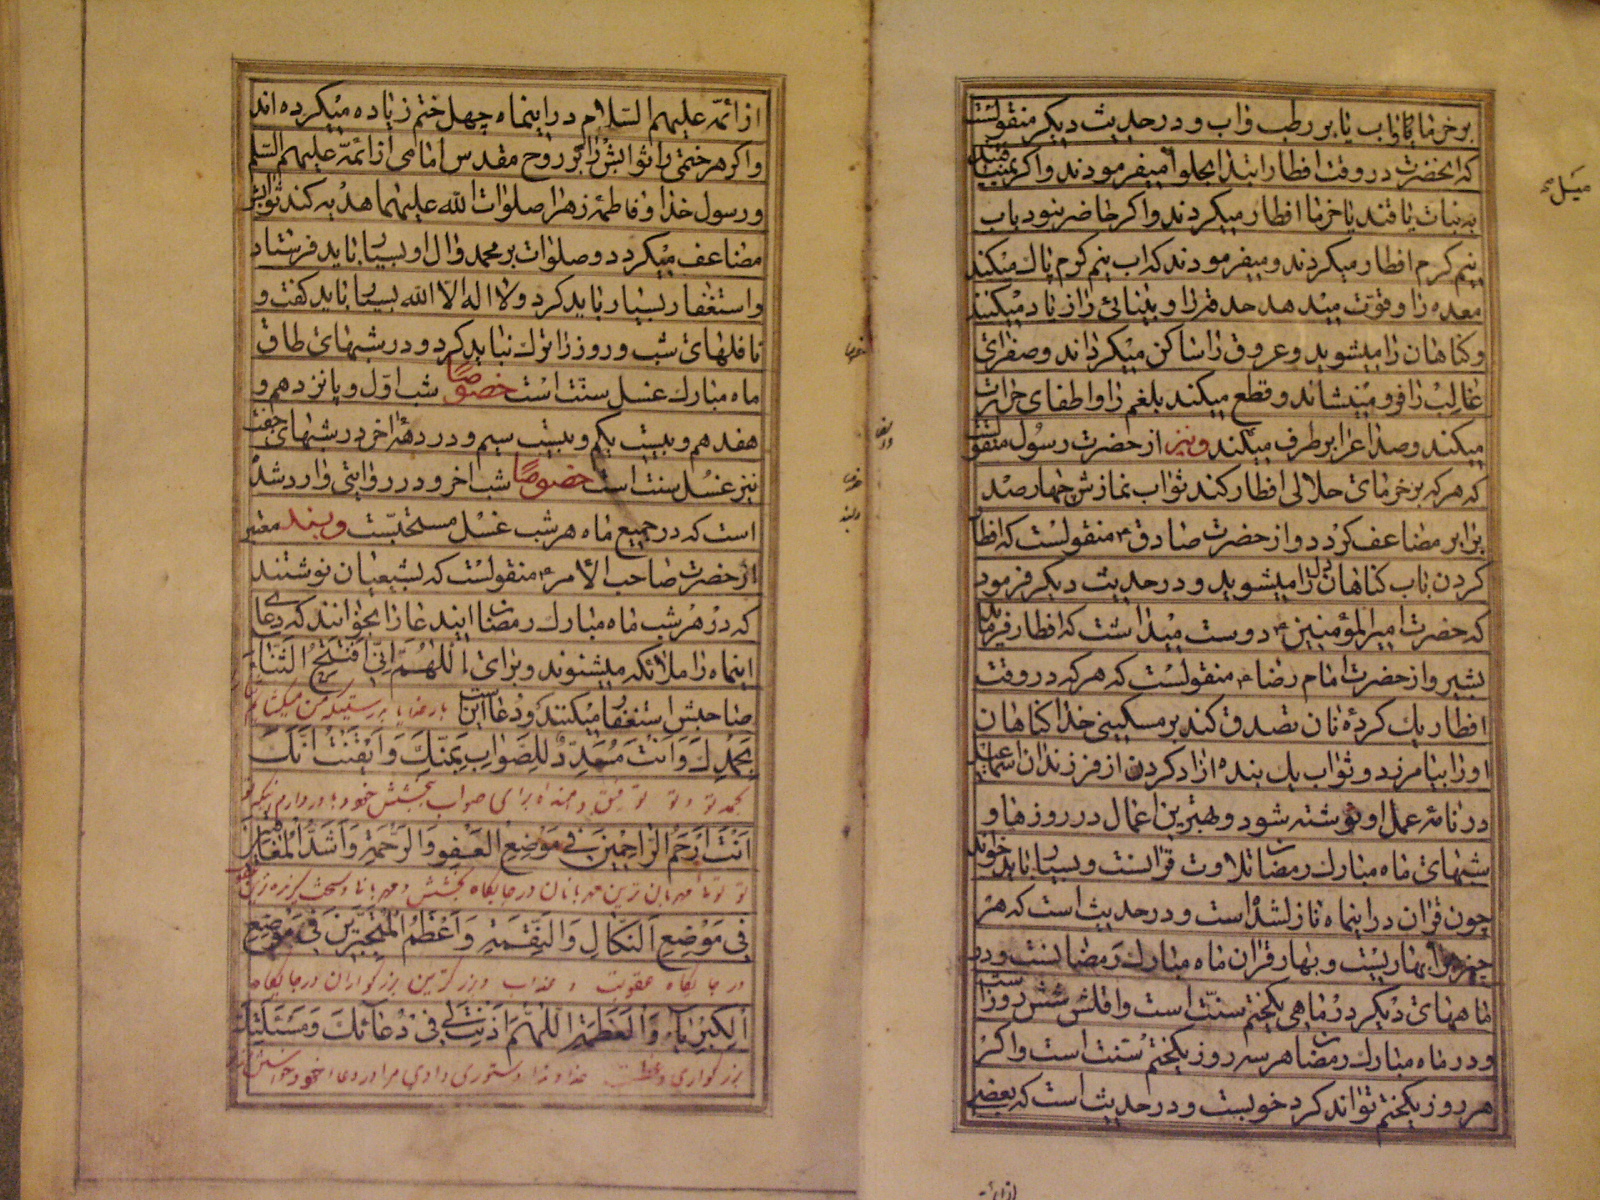 برخرما یا آب یا بر رطب و آب و در حدیث دیگر منقولست
که آنحضرت در وقت افطار ابتدا بحلوا میفرمودند و اگر نمییافتند
به نبات یا قند یا خرما افطار میکردند و اگر حاضر نبود بآب
نیم گرم افطار میکردند و میفرمودند که آب نیم گرم پاک میکند
معده را و قوت میدهد حدقه را و بینائی را زیاد میکند
و گناهان را میشوید و عروق را ساکن میگرداند و صفرای
غالب را فرو مینشاند و قطع میکند بلغم را و اطفای حرارت
میکند و صداع را بر طرف میکند و نیز از حضرت رسول منقولست
که هر که بر خرمای حلالی افطار کند ثواب نمازش چهار صد
برابر مضاعف گردد و از حضرت صادق ع منقولست که افطار
کردن بآب گناهان دل را میشوید و در حدیث دیگر فرمود
که حضرت امیر المؤمنین ع دوست میداشت که افطار فرماید
بشیر و از حضرت امام رضا ع منقولست که هر که در وقت
افطار یک گردۀ نان تصدق کند بر مسکینی خدا گناهان
او را بیامرزد و ثواب یک بنده آزاد کردن از فرزندان اسماعیل
در نامۀ عمل او نوشته شود و بهترین اعمال در روزها و
شبهای ماه مبارک رمضان تلاوت قرآنست و بسیار باید خواند
چون قرآن در اینماه نازل شده است و در حدیث است که هر
چیزی را بهاریست و بهار قرآن ماه مبارک رمضانست و در
ماههای دیگر در ماهی یکختم سنت است و اقلش شش روز است
و در ماه مبارک رمضان هر سه روز یکختم سنت است و اگر
هر روز یکختم تواند کرد خوبست و در حدیث است که بعضی
از ائمه
از ائمّه علیهم السّلام در اینماه چهل ختم زیاده میکرده اند
و اگر هر ختمی را ثوابش را بر روح مقدس امامی از ائمّه علیهم السّلم
و رسول خدا و فاطمۀ زهرا صلوات الله علیهما هدیه کند ثوابش
مضاعف میگردد و صلوات بر محمد و آل او بسیار باید فرستاد
و استغفار بسیار باید کرد و لا اله الا الله بسیار باید گفت و
نافلهای شب و روز را ترک نباید کرد و در شبهای طاق
ماه مبارک غسل سنّت است خصوصًا شب اوّل و پانزدهم و
هفدهم و بیست یکم و بیست سیم و در دهۀ آخر در شبهای جفت
نیز غسل سنت است خصوصًا شب آخر و در روایتی وارد شده
است که در جمیع ماه هر شب غسل مستحبّست و بسند معتبر
از حضرت صاحب الأمر ع منقولست که بشیعیان نوشتند
که در هر شب ماه مبارک رمضان ایندعا را بخوانند که دعای
اینماه را ملائکه میشنوند و برای اَللّٰهُمَّ اِنّی اَفْتَتِحُ الثَّنَاءَ
صاحبش استغفار میکنند و دعا این است
بِحَمْدِكَ وَاَنْتَ مُسَدِّدٌ لِلصَّوَابِ بِمَنِّكَ وَاَیْقَنْتُ اَنَّكَ
اَنْتَ اَرْحَمُ الرَّاحِمِینَ فی مَوْضِعِ الْعَفْوِ وَالرَّحْمَةِ وَاَشَدُّ الْمُعَاقِبینَ
فی مَوْضِعِ النَّكَالِ وَالنَّقِمَةِ وَاَعْظَمُ الْمُتَجَبِّرینَ فی مَوْضِعِ
در جایگاه عقوبت و عذاب و بزرگترین بزرگواران در جایگاه
الْكِبْرِیَاءِ وَالْعَظَمَةِ اَللّٰهُمَّ اَذِنْتَ لی فی دُعَائِكَ وَمَسْئَلَتِكَ